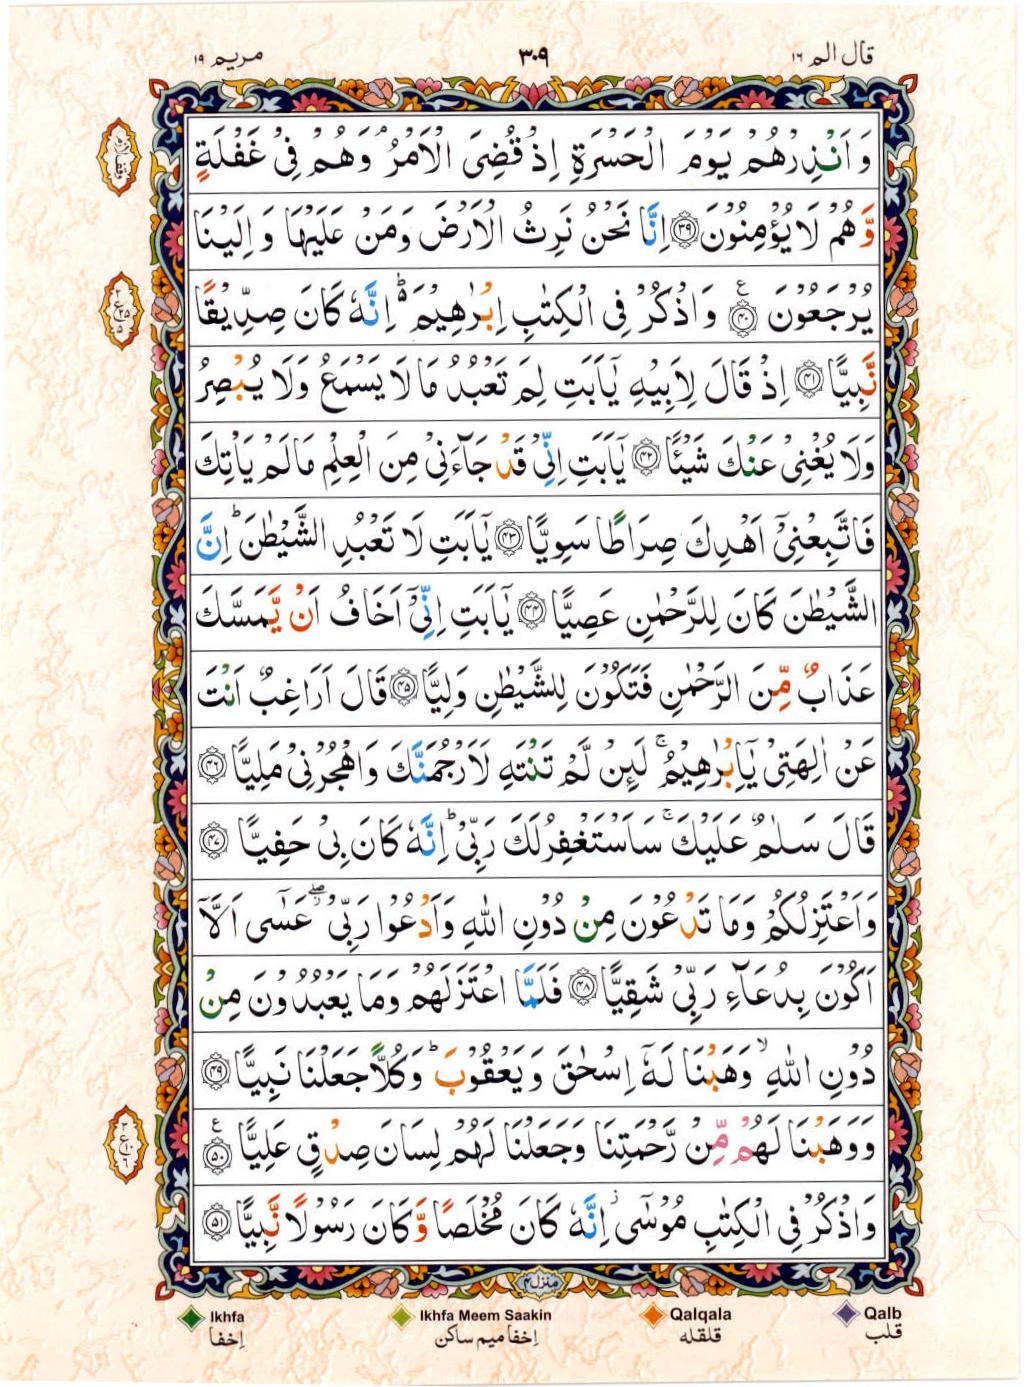 قال الم ١٦ ٣٠٩ مريم ١٩
وَاَنْذِرْهُمْ يَوْمَ الْحَسْرَةِ اِذْ قُضِىَ الْاَمْرُ وَهُمْ فِىْ غَفْلَةٍ
وَّهُمْ لَا يُؤْمِنُوْنَ ۝۳۹ اِنَّا نَحْنُ نَرِثُ الْاَرْضَ وَمَنْ عَلَيْهَا وَ اِلَيْنَا
يُرْجَعُوْنَ ۝۴۰ وَاذْكُرْ فِى الْكِتٰبِ اِبْرٰهِيْمَ ؕ۬ اِنَّهٗ كَانَ صِدِّيْقًا
نَّبِيًّا ۝۴۱ اِذْ قَالَ لِاَبِيْهِ يٰۤاَبَتِ لِمَ تَعْبُدُ مَا لَا يَسْمَعُ وَلَا يُبْصِرُ
وَلَا يُغْنِىْ عَنْكَ شَيْئًا ۝۴۲ يٰۤاَبَتِ اِنِّىْ قَدْ جَآءَنِىْ مِنَ الْعِلْمِ مَا لَمْ يَاْتِكَ
فَاتَّبِعْنِىْۤ اَهْدِكَ صِرَاطًا سَوِيًّا ۝۴۳ يٰۤاَبَتِ لَا تَعْبُدِ الشَّيْطٰنَ ؕ اِنَّ
الشَّيْطٰنَ كَانَ لِلرَّحْمٰنِ عَصِيًّا ۝۴۴ يٰۤاَبَتِ اِنِّىْۤ اَخَافُ اَنْ يَّمَسَّكَ
عَذَابٌ مِّنَ الرَّحْمٰنِ فَتَكُوْنَ لِلشَّيْطٰنِ وَلِيًّا ۝۴۵ قَالَ اَرَاغِبٌ اَنْتَ
عَنْ اٰلِهَتِىْ يٰۤاِبْرٰهِيْمُ ۚ لَئِنْ لَّمْ تَنْتَهِ لَاَرْجُمَنَّكَ وَاهْجُرْنِىْ مَلِيًّا ۝۴۶
قَالَ سَلٰمٌ عَلَيْكَ ۚ سَاَسْتَغْفِرُ لَكَ رَبِّىْ ؕ اِنَّهٗ كَانَ بِىْ حَفِيًّا ۝۴۷
وَاَعْتَزِلُكُمْ وَمَا تَدْعُوْنَ مِنْ دُوْنِ اللّٰهِ وَاَدْعُوْا رَبِّىْ ۖ عَسٰۤى اَلَّاۤ
اَكُوْنَ بِدُعَآءِ رَبِّىْ شَقِيًّا ۝۴۸ فَلَمَّا اعْتَزَلَهُمْ وَمَا يَعْبُدُوْنَ مِنْ
دُوْنِ اللّٰهِ ۙ وَهَبْنَا لَهٗۤ اِسْحٰقَ وَيَعْقُوْبَ ؕ وَكُلًّا جَعَلْنَا نَبِيًّا ۝۴۹
وَوَهَبْنَا لَهُمْ مِّنْ رَّحْمَتِنَا وَجَعَلْنَا لَهُمْ لِسَانَ صِدْقٍ عَلِيًّا ۝۵۰
وَاذْكُرْ فِى الْكِتٰبِ مُوْسٰٓى ز اِنَّهٗ كَانَ مُخْلَصًا وَّكَانَ رَسُوْلًا نَّبِيًّا ۝۵۱
منزل ۴
Ikhfa Ikhfa Meem Saakin Qalqala Qalb
اِخفا اِخفا ميم ساكن قلقله قلب